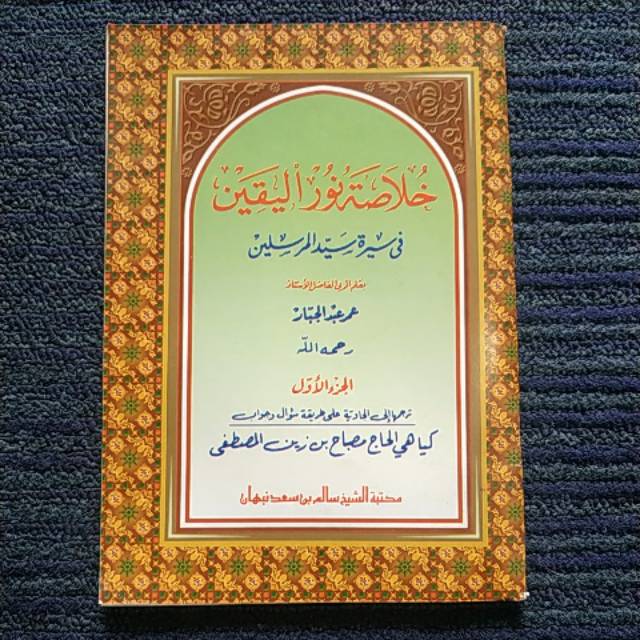 خُلاَصَة نُورُ اليَقِيْن
فى سيرة سيّد المرسلين
بقلم المربى الفاضل الأستاذ
عمر عبد الجبّار
رحمه اللّٰه
الجزء الأوّل
ترجمها إلى الجاوية على طريقة سؤال وجواب
كياهي الحاج مصباح بن زين المصطفى
مكتبة الشيخ سالم بن سعد نبهان